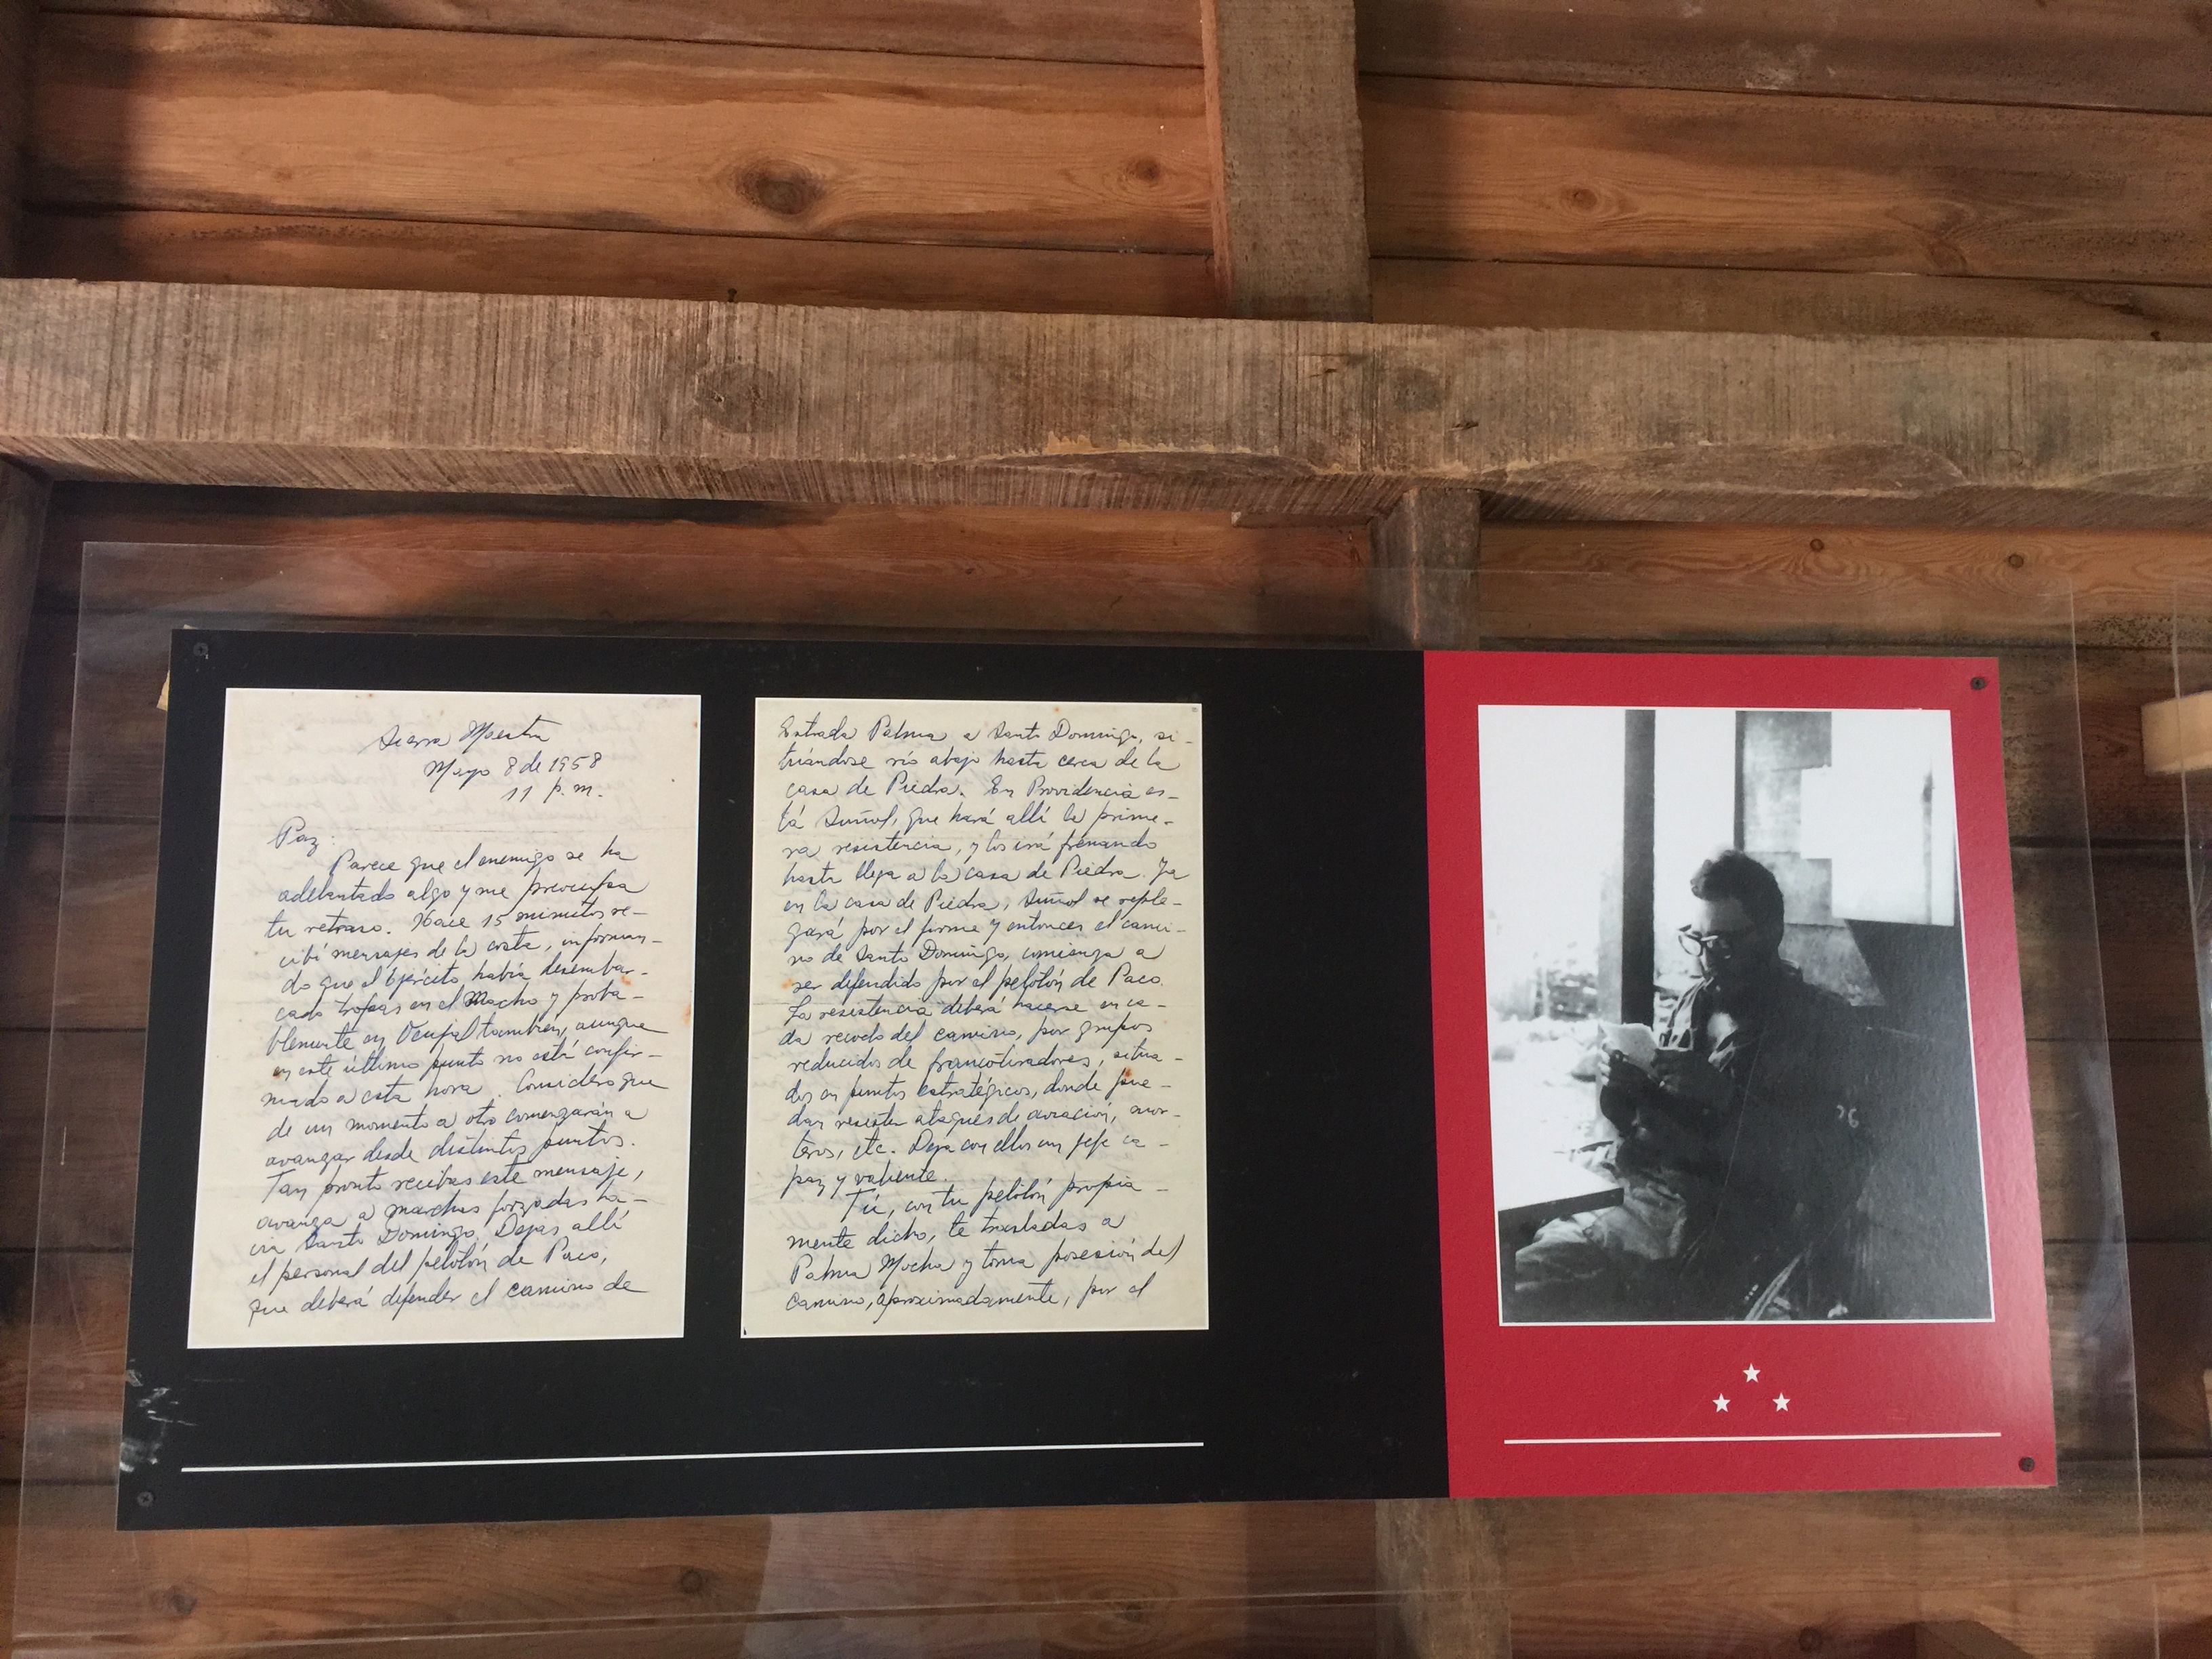 Sierra Maestra
Mayo 8 de 1958
11 p.m.
Paz:
Parece que el enemigo se ha
adelantado algo y me preocupa
tu retraso. Hace 15 minutos re-
cibí mensajes de la costa, informan-
do que el Ejército había desembar-
cado tropas en el Macho y proba-
blemente en Ocujal también, aunque
en este último punto no está confir-
mado a esta hora. Considero que
de un momento a otro comenzarán a
avanzar desde distintos puntos.
Tan pronto recibas este mensaje,
avanza a marchas forzadas ha-
cia Santo Domingo. Dejas allí
el personal del pelotón de Paco,
que deberá defender el camino de
Estrada Palma a Santo Domingo, si-
tuándose río abajo hasta cerca de la
casa de Piedra. En Providencia es-
tá Suñol, que hará allí la prime-
ra resistencia, y los irá frenando
hasta llega a la casa de Piedra. Ya
en la casa de Piedra, Suñol se reple-
gará por el firme y entonces el cami-
no de Santo Domingo, comienza a
ser defendido por el pelotón de Paco.
La resistencia deberá hacerse en ca-
da recodo del camino, por grupos
reducidos de francotiradores, situa-
dos en puntos estratégicos, donde pue-
dan resistir ataques de aviación, mor-
teros, etc. Deja con ellos un jefe ca-
paz y valiente.
Tú, con tu pelotón propia-
mente dicho, te trasladas a
Palma Mocha y toma posesión del
camino, aproximadamente, por el
26